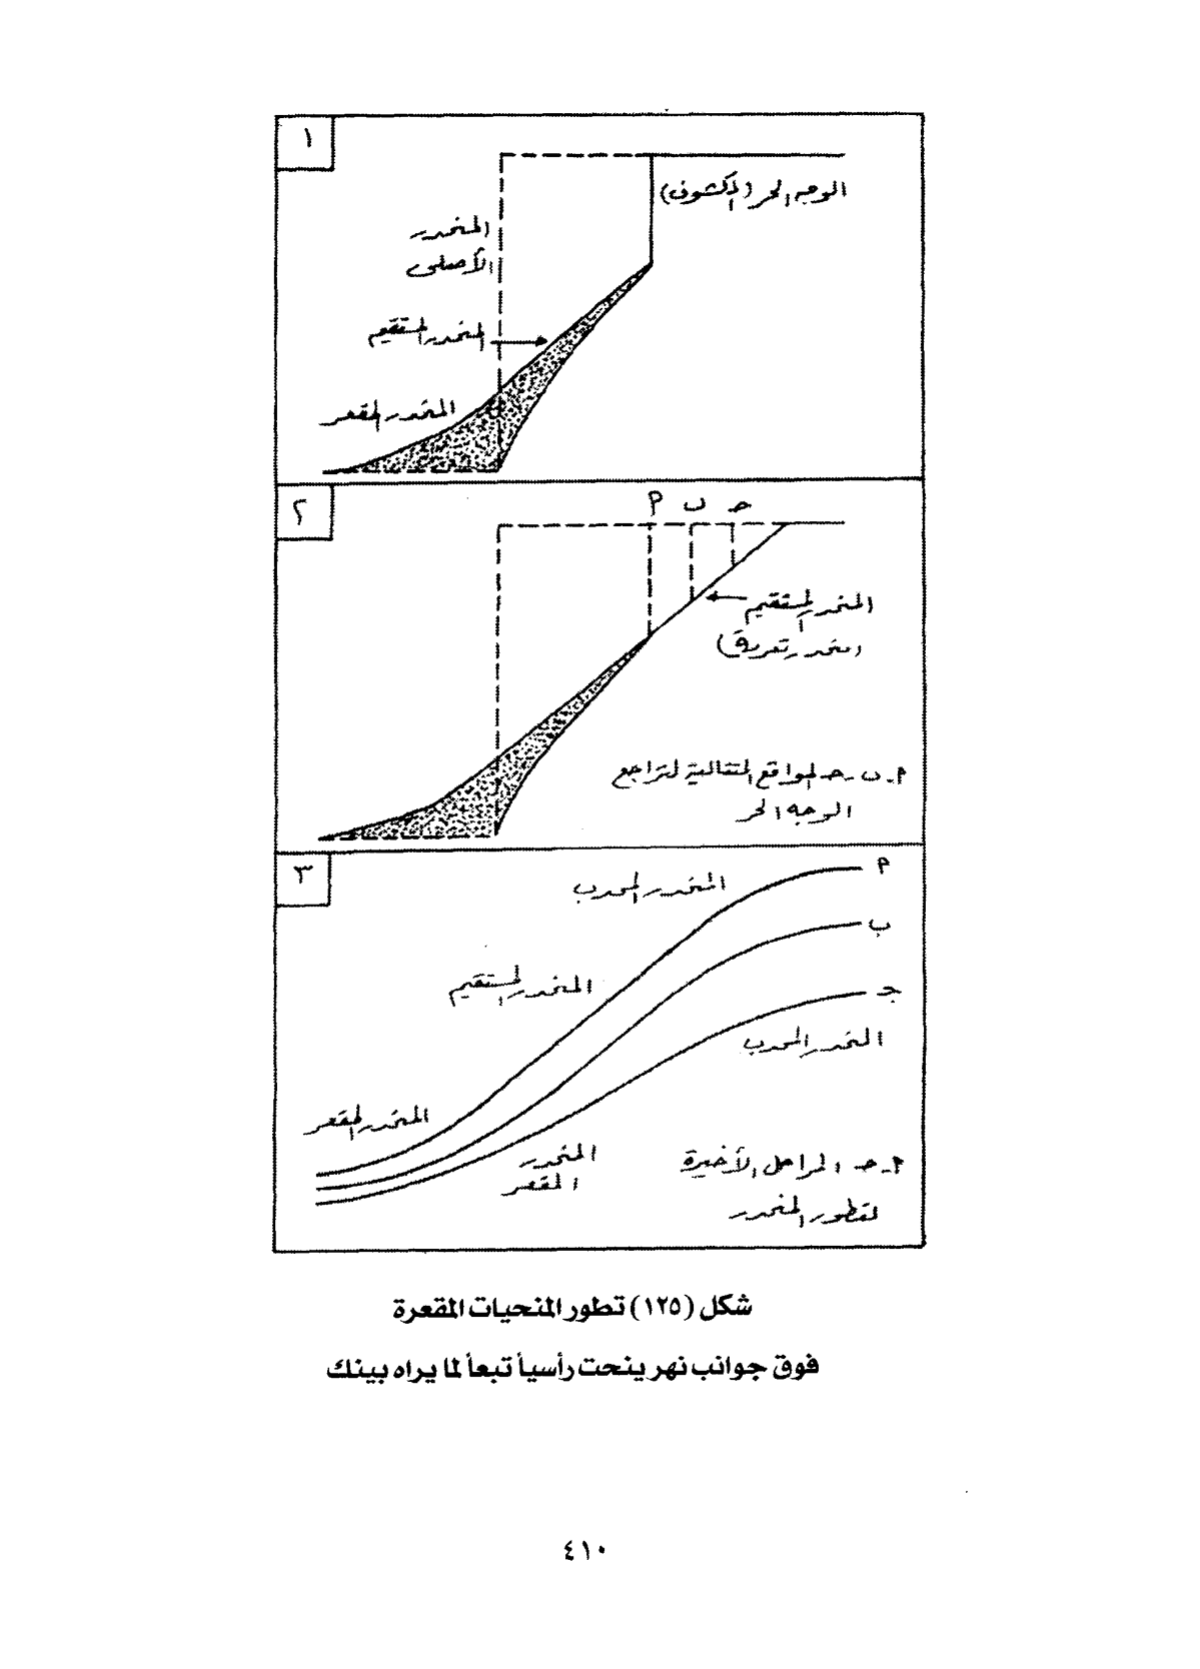 ١
الوجه الحر (المكشوف)
المنحدر
الأصلى
المنحدر المستقيم
المنحدر المقعر
٢
م ب حـ
المنحدر المستقيم
(منحدر تعرية)
م ـ ب ـ حـ المواقع المتتالية لتراجع
الوجه الحر
٣
م
المنحدر المحدب
ب
المنحدر المستقيم
جـ
المنحدر المحدب
المنحدر المقعر
المنحدر
المقعر
م ـ حـ المراحل الأخيرة
لتطور المنحدر
شكل (١٢٥) تطور المنحيات المقعرة
فوق جوانب نهر ينحت رأسياً تبعاً لما يراه بينك
٤١٠